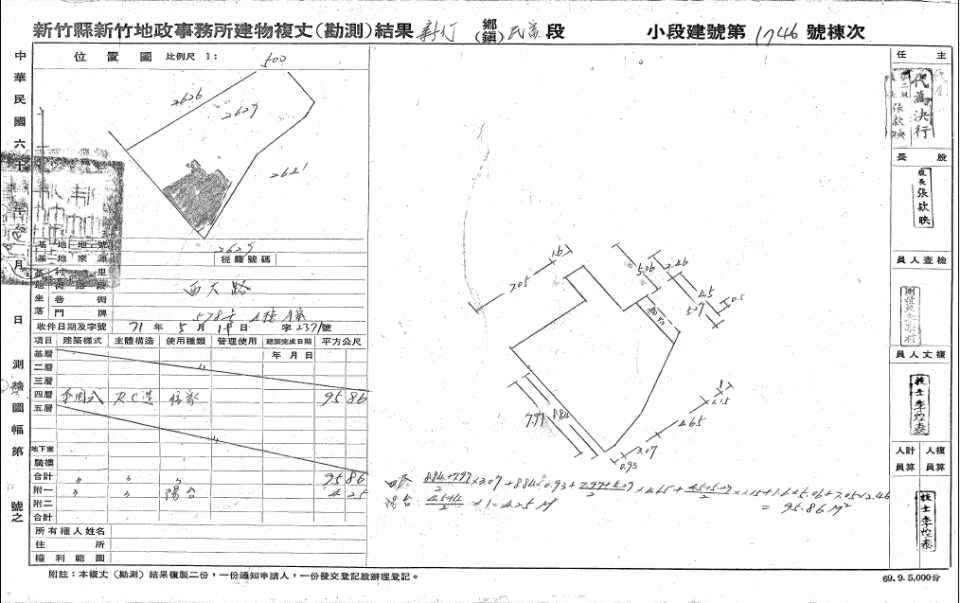 新竹縣新竹地政事務所建物複丈(勘測)結果 新竹 鄉(鎮) 民富 段 小段建號第 1746 號棟次
中華民國六十 年 月 日 測繪圖幅第 號之
位置圖 比例尺 1: 500
2626
2629
2621
基地地號 2629
基地來源 稅籍號碼
坐落
西大路
街
巷
門牌 578 A
收件日期及字號 71 年 5 月 19 日 字 2371 號
項目 建築樣式 主體構造 使用種類 管理使用 建築完成日期 平方公尺
基層 年 月 日
二層 〃
三層
四層 本國式 R.C造 住家 95 86
五層
〃
地下室
騎樓
合計 〃 〃 〃 95 86
附一 〃 〃 陽台 4 25
附二
合計
所有權人姓名
住所
權利範圍
附註:本複丈(勘測)結果複製二份,一份通知申請人,一份發交登記股辦理登記。
1.6
7.05
5.06
2.46
4.5
5.07
0.5
陽台
7.97
8.84
1
1.15
4.65
3.07
0.93
四層 8.84+7.97/2 ×3.07+8.84×0.93+7.97+5.07/2 ×4.65+4.5+5.07/2 ×1.15+1.6×5.06+7.05×2.46
= 95.86 M²
陽台 4.5+4/2 ×1=4.25 M²
主任
代為決行
張欽映
股長
股長 張欽映
檢查員人
複丈員人
技士李煌泰
複算員人
計算員人
技士李煌泰
69.9.5,000份